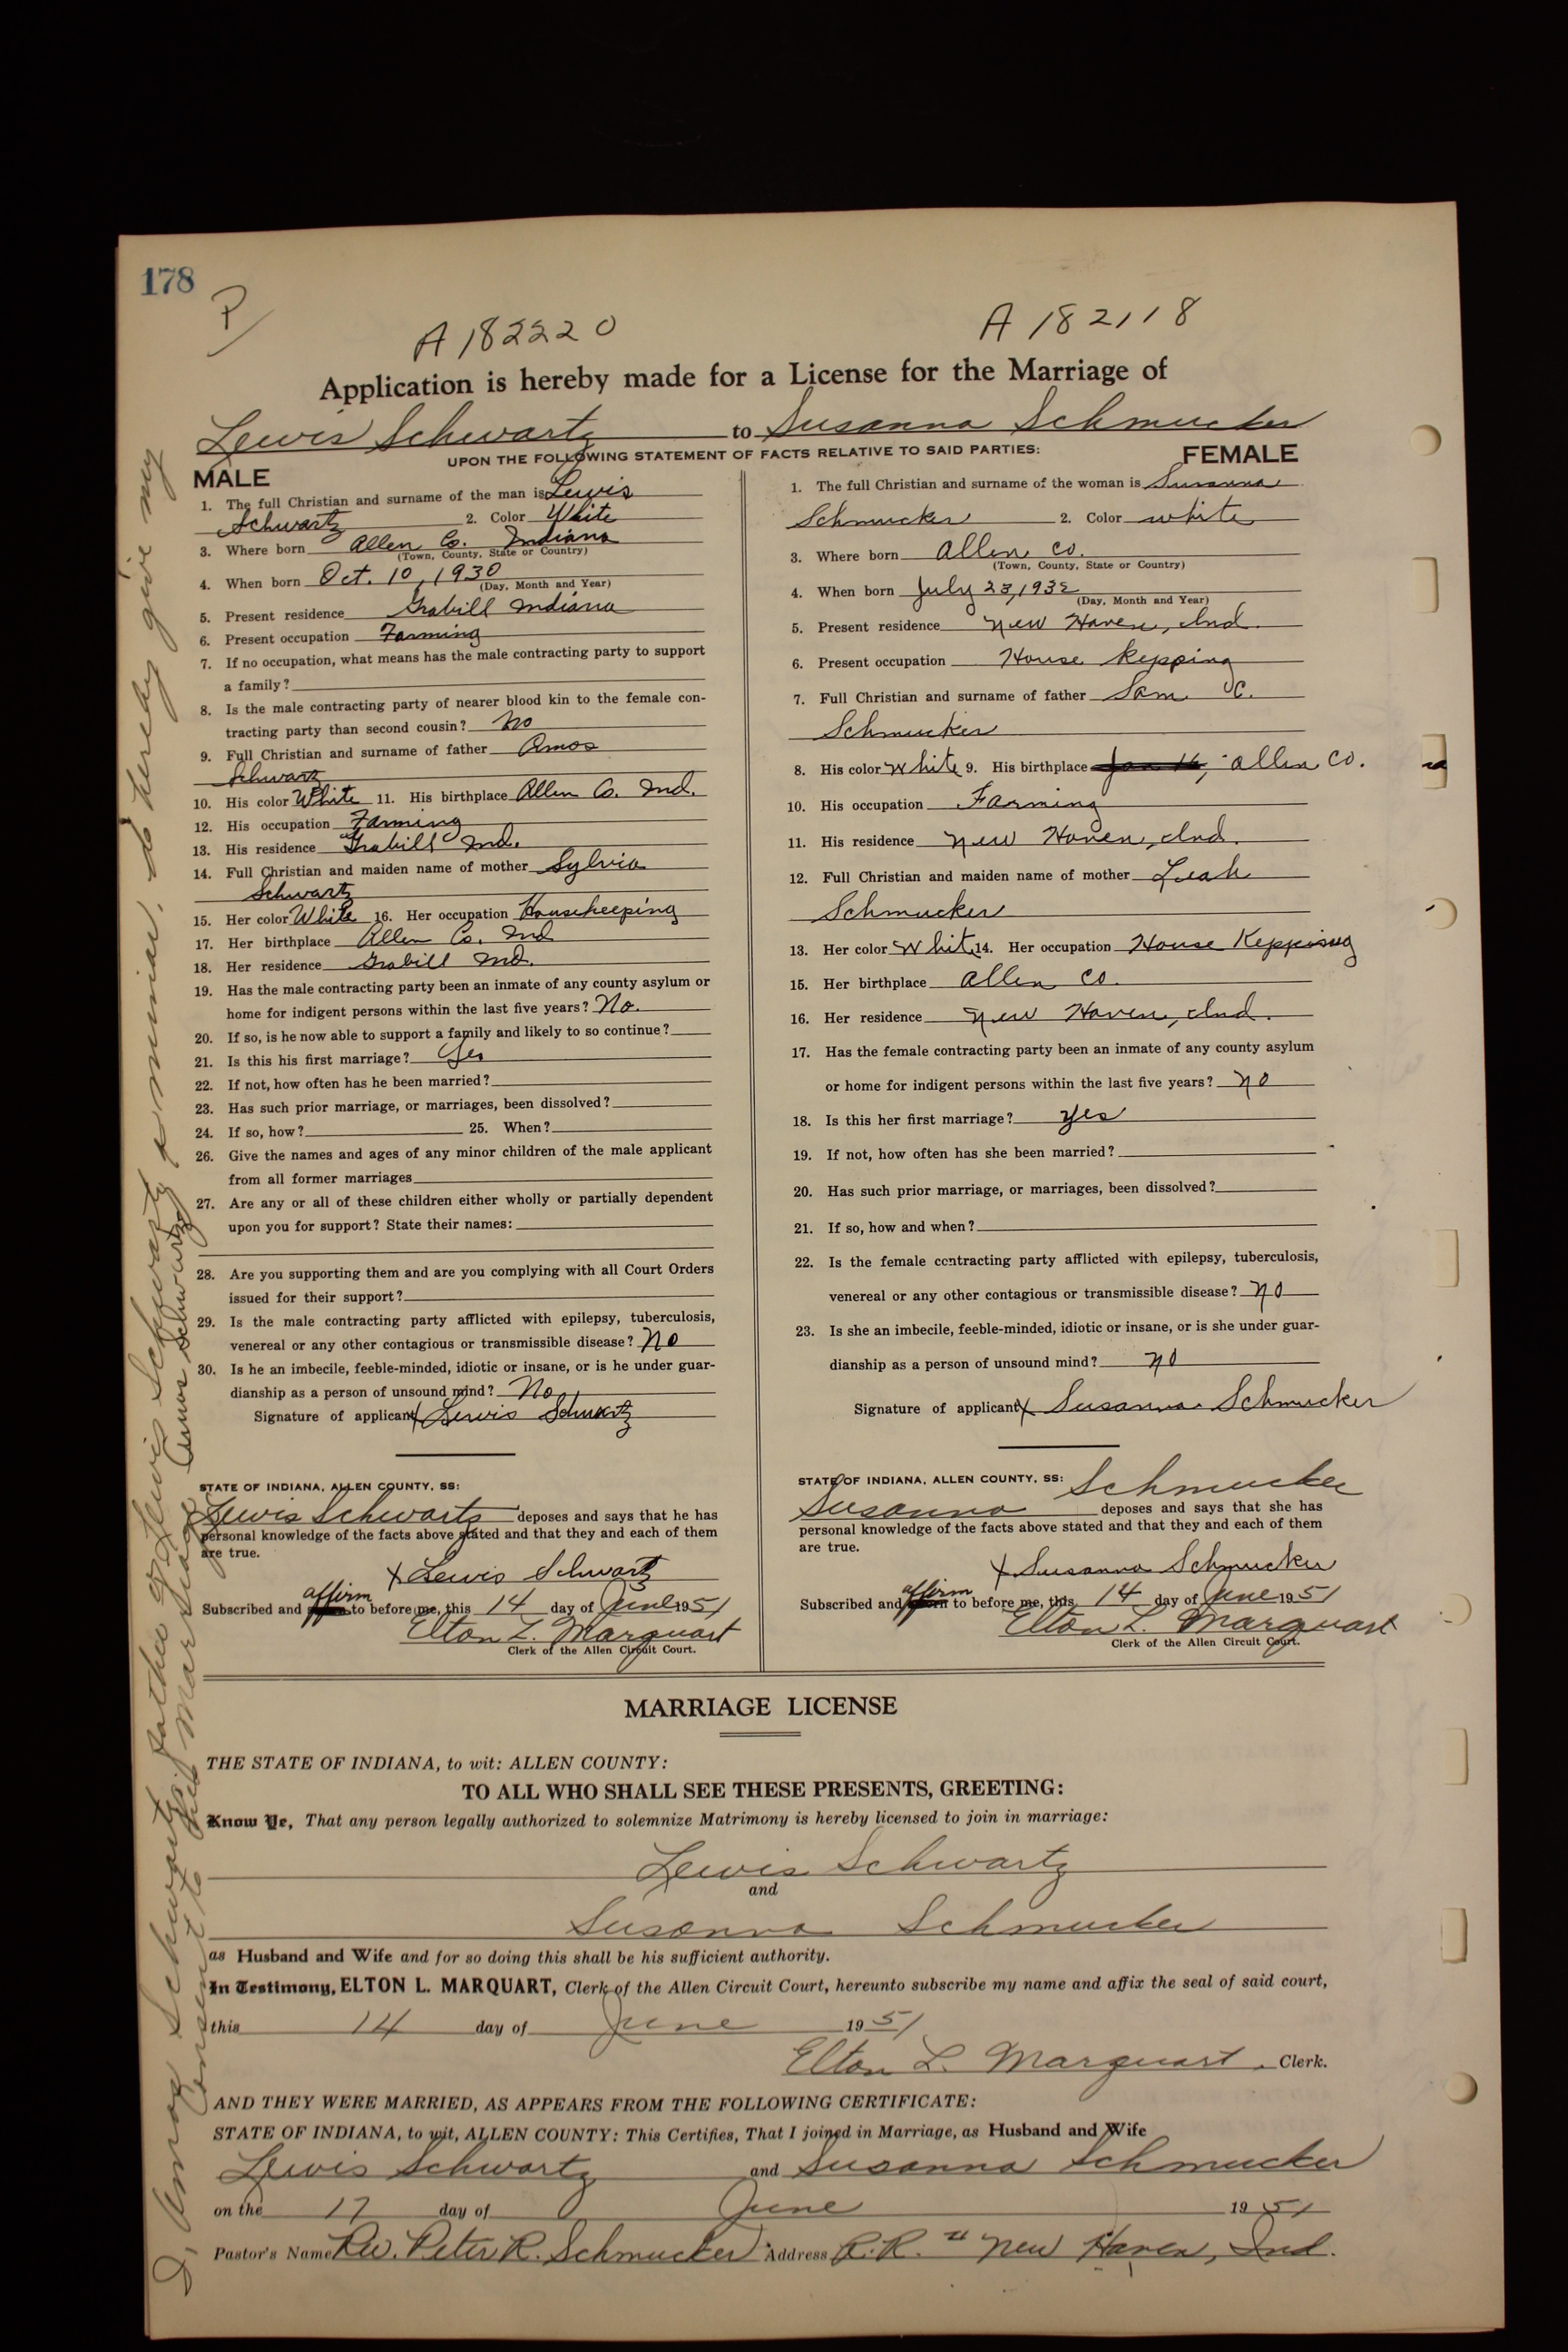 178
P
A 182220
A 182118
Application is hereby made for a License for the Marriage of
Lewis Schwartz to Susanna Schmucker
UPON THE FOLLOWING STATEMENT OF FACTS RELATIVE TO SAID PARTIES:
MALE
1. The full Christian and surname of the man is Lewis
Schwartz 2. Color White
3. Where born Allen Co. Indiana
(Town, County, State or Country)
4. When born Oct. 10, 1930
(Day, Month and Year)
5. Present residence Grabill Indiana
6. Present occupation Farming
7. If no occupation, what means has the male contracting party to support
a family?
8. Is the male contracting party of nearer blood kin to the female con-
tracting party than second cousin? No
9. Full Christian and surname of father Amos
Schwartz
10. His color White 11. His birthplace Allen Co. Ind.
12. His occupation Farming
13. His residence Grabill Ind.
14. Full Christian and maiden name of mother Sylvia
Schwartz
15. Her color White 16. Her occupation Housekeeping
17. Her birthplace Allen Co. Ind
18. Her residence Grabill Ind.
19. Has the male contracting party been an inmate of any county asylum or
home for indigent persons within the last five years? No.
20. If so, is he now able to support a family and likely to so continue?
21. Is this his first marriage? Yes
22. If not, how often has he been married?
23. Has such prior marriage, or marriages, been dissolved?
24. If so, how? 25. When?
26. Give the names and ages of any minor children of the male applicant
from all former marriages
27. Are any or all of these children either wholly or partially dependent
upon you for support? State their names:
28. Are you supporting them and are you complying with all Court Orders
issued for their support?
29. Is the male contracting party afflicted with epilepsy, tuberculosis,
venereal or any other contagious or transmissible disease? No
30. Is he an imbecile, feeble-minded, idiotic or insane, or is he under guar-
dianship as a person of unsound mind? No
Signature of applicant X Lewis Schwartz
STATE OF INDIANA, ALLEN COUNTY, SS:
Lewis Schwartz deposes and says that he has
personal knowledge of the facts above stated and that they and each of them
are true.
X Lewis Schwartz
affirm
Subscribed and to before me, this 14 day of June 1951
Elton L. Marquart
Clerk of the Allen Circuit Court.
FEMALE
1. The full Christian and surname of the woman is Susanna
Schmucker 2. Color white
3. Where born Allen co.
(Town, County, State or Country)
4. When born July 23, 1932
(Day, Month and Year)
5. Present residence New Haven, Ind.
6. Present occupation House Kepping
7. Full Christian and surname of father Sam C.
Schmucker
8. His color White 9. His birthplace Allen Co.
10. His occupation Farming
11. His residence New Haven, Ind.
12. Full Christian and maiden name of mother Leah
Schmucker
13. Her color Whit 14. Her occupation House Kepping
15. Her birthplace Allen Co.
16. Her residence New Haven, Ind.
17. Has the female contracting party been an inmate of any county asylum
or home for indigent persons within the last five years? no
18. Is this her first marriage? yes
19. If not, how often has she been married?
20. Has such prior marriage, or marriages, been dissolved?
21. If so, how and when?
22. Is the female contracting party afflicted with epilepsy, tuberculosis,
venereal or any other contagious or transmissible disease? no
23. Is she an imbecile, feeble-minded, idiotic or insane, or is she under guar-
dianship as a person of unsound mind? no
Signature of applicant X Susanna Schmucker
STATE OF INDIANA, ALLEN COUNTY, SS: Schmucker
Susanna deposes and says that she has
personal knowledge of the facts above stated and that they and each of them
are true.
X Susanna Schmucker
affirm
Subscribed and to before me, this 14 day of June 1951
Elton L. Marquart
Clerk of the Allen Circuit Court.
MARRIAGE LICENSE
THE STATE OF INDIANA, to wit: ALLEN COUNTY:
TO ALL WHO SHALL SEE THESE PRESENTS, GREETING:
Know Ye, That any person legally authorized to solemnize Matrimony is hereby licensed to join in marriage:
Lewis Schwartz
and
Susanna Schmucker
as Husband and Wife and for so doing this shall be his sufficient authority.
In Testimony, ELTON L. MARQUART, Clerk of the Allen Circuit Court, hereunto subscribe my name and affix the seal of said court,
this 14 day of June 1951
Elton L. Marquart, Clerk.
AND THEY WERE MARRIED, AS APPEARS FROM THE FOLLOWING CERTIFICATE:
STATE OF INDIANA, to wit, ALLEN COUNTY: This Certifies, That I joined in Marriage, as Husband and Wife
Lewis Schwartz and Susanna Schmucker
on the 17 day of June 1951
Pastor's Name Rev. Peter R. Schmucker Address R.R. New Haven, Ind.
I, Amos Schwartz, father of Lewis Schwartz a minor, do hereby give my
consent to this marriage
Amos Schwartz